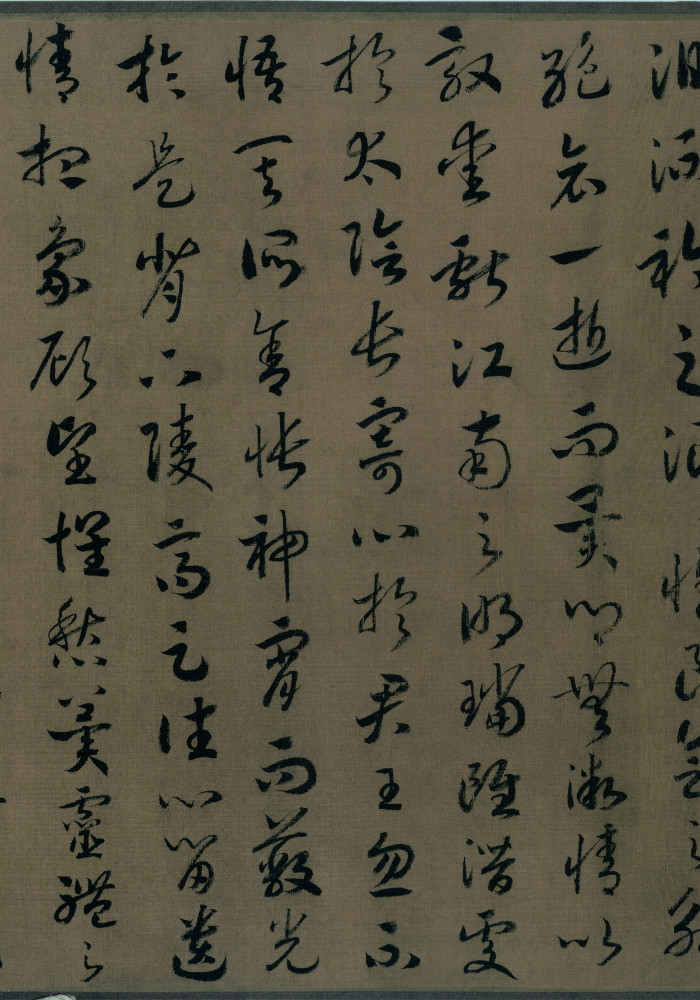 泪流衿之浪悼良會之永
絕哀一逝而異鄉無微情以
效愛獻江南之明璫雖潛處
於太陰長寄心於君王忽不
悟其所舍悵神宵而蔽光
於是背下陵高足往心留遺
情想象顧望懷愁冀靈體之